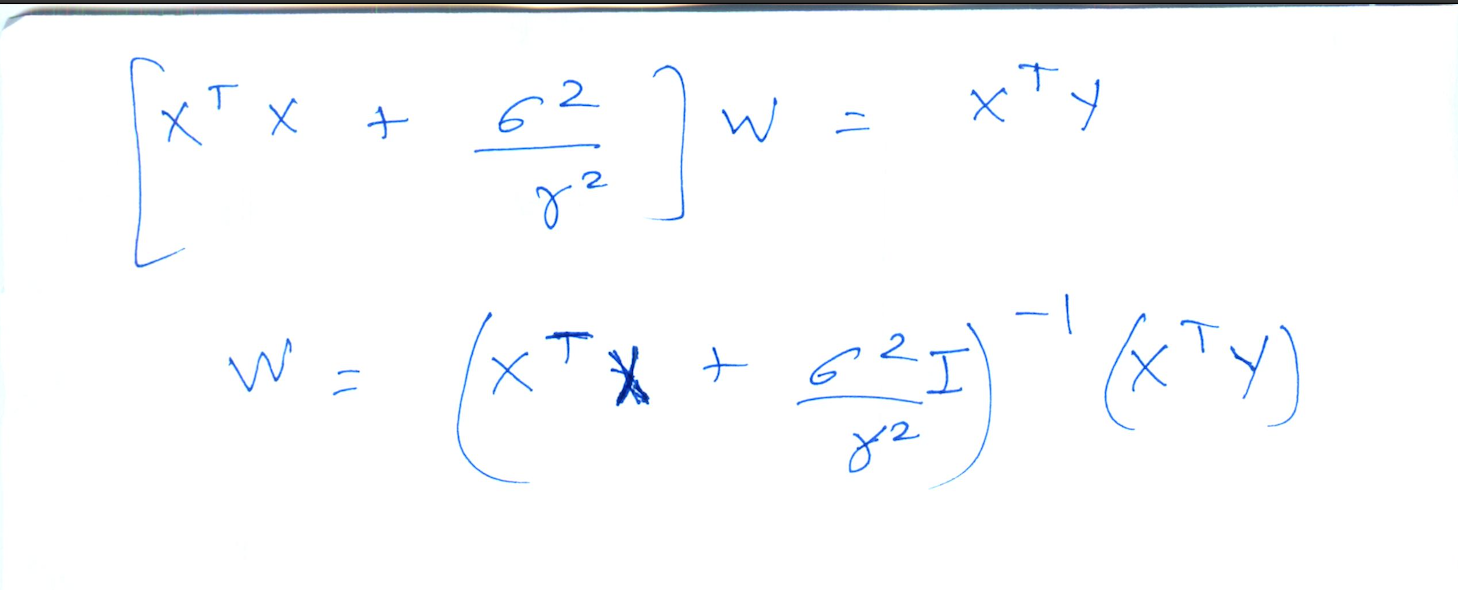 [X^T X + σ²/γ²] W = X^T Y
W = (X^T X + σ²I/γ²)^-1 (X^T Y)